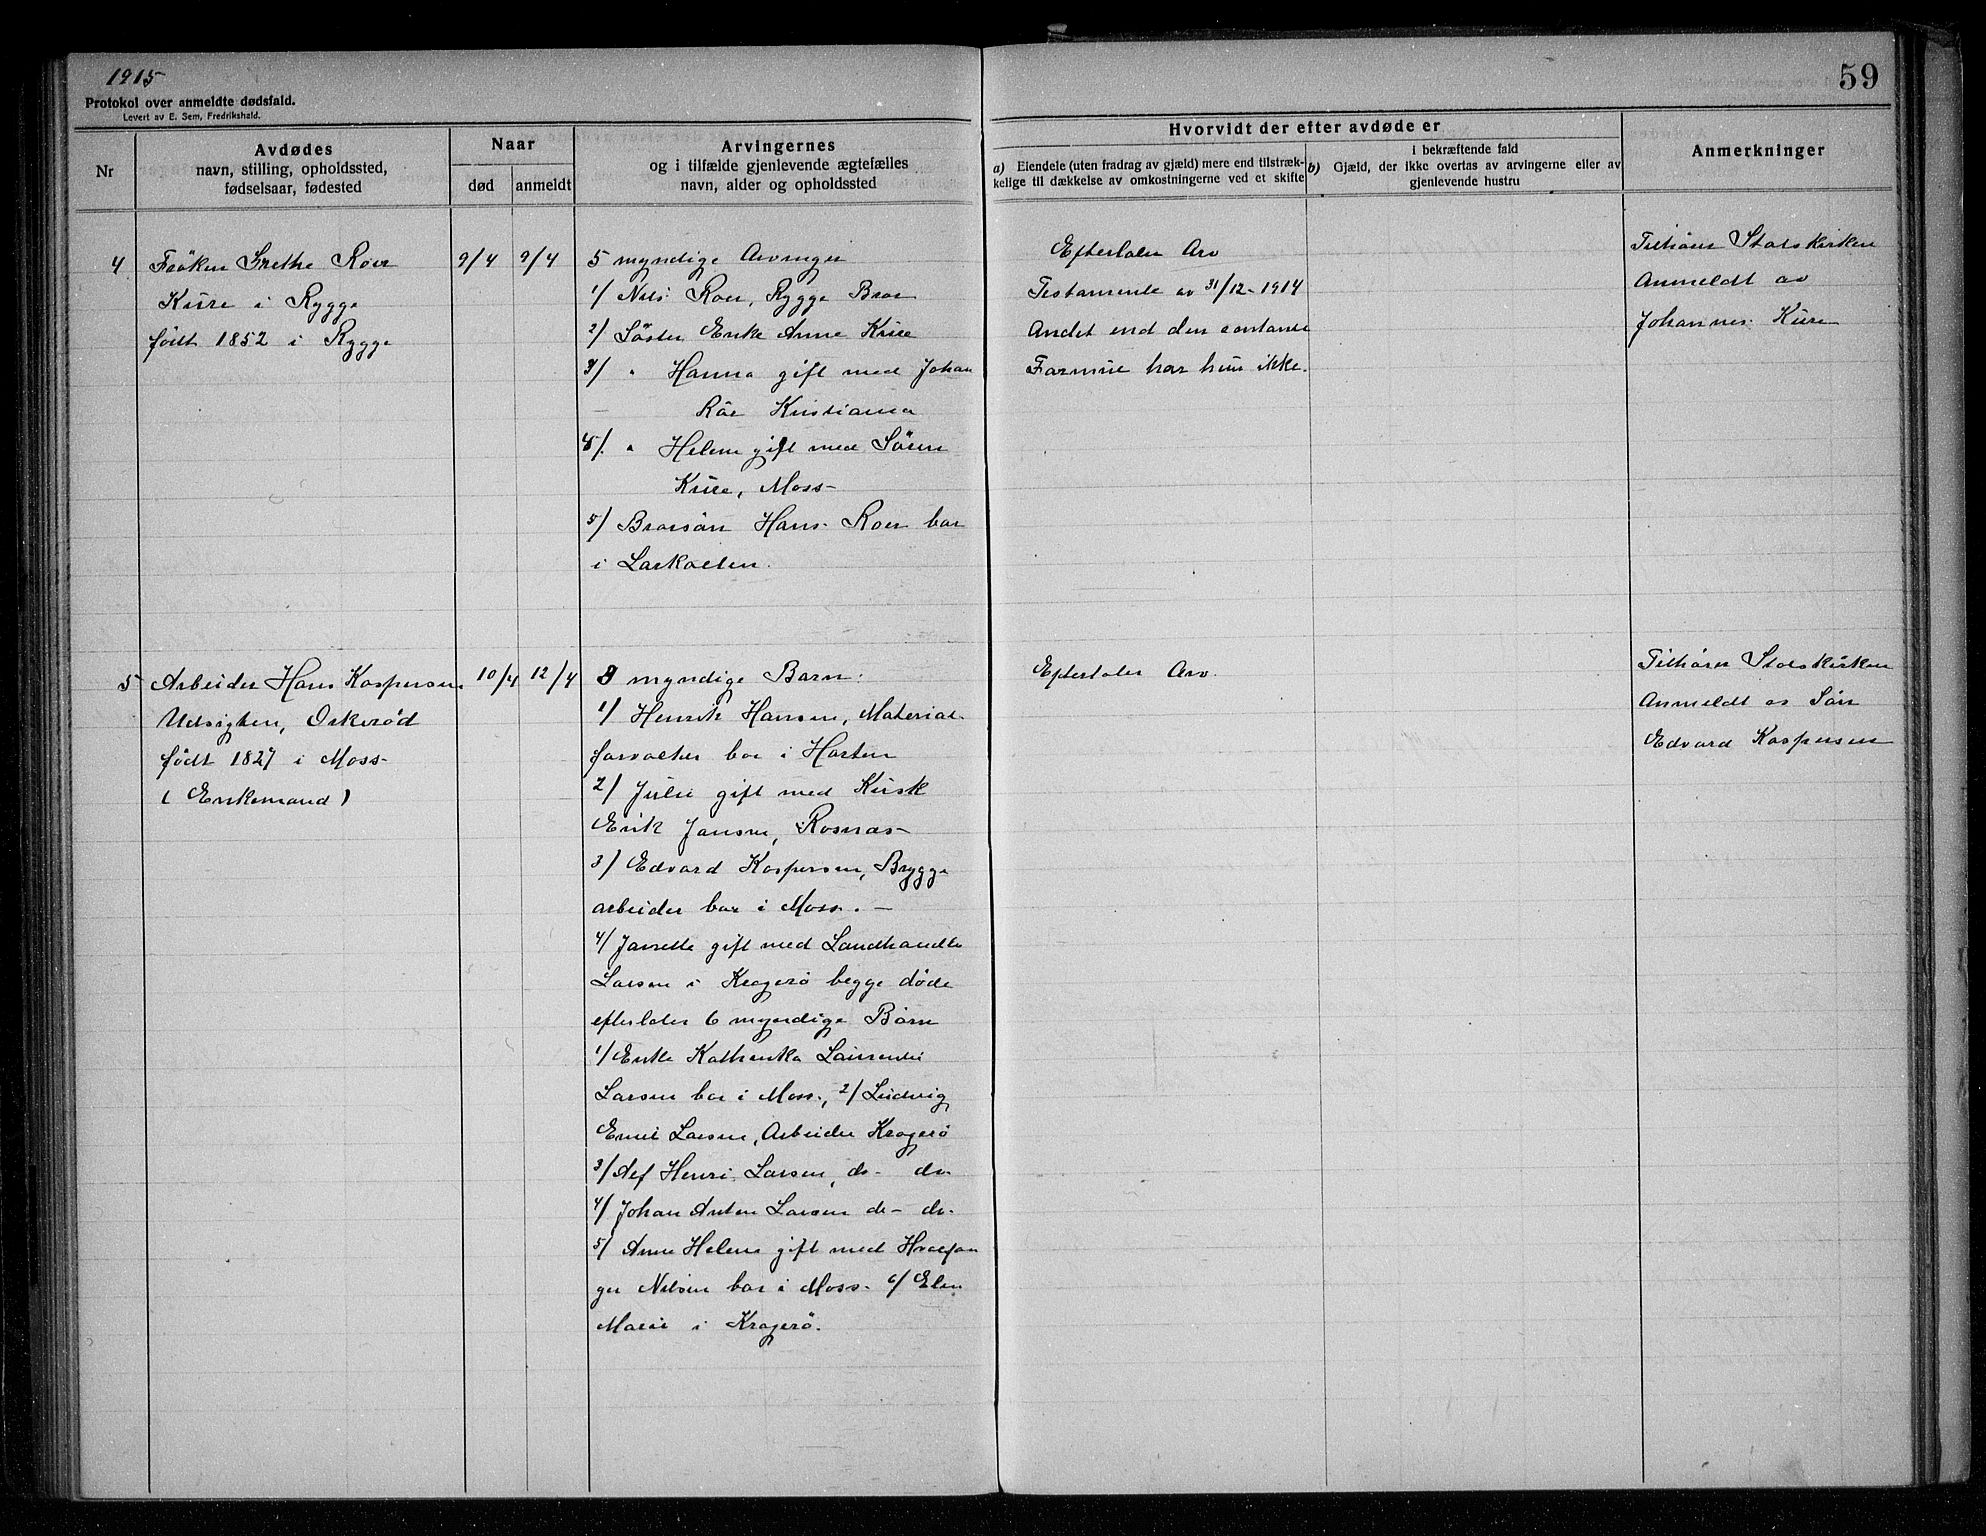 1915
59
Protokol over anmeldte dødsfald.
Levert av E. Sem, Fredrikshald.
Nr
Avdødes
navn, stilling, opholdssted,
fødselsaar, fødested
Naar
død
anmeldt
Arvingernes
og i tilfælde gjenlevende ægtefælles
navn, alder og opholdssted
Hvorvidt der efter avdøde er
a) Eiendele (uten fradrag av gjæld) mere end tilstræk-
kelige til dækkelse av omkostningerne ved et skifte
i bekræftende fald
b) Gjæld, der ikke overtas av arvingerne eller av
gjenlevende hustru
Anmerkninger
4
Frøken Grethe Roer
Kure i Rygge
født 1852 i Rygge
9/4
9/4
5 myndige Arvinger
1/ Nils Roer, Rygge Bror
2/ Söster Enke Anne Kure
3/ " Hanna gift med Johan
Röe Kristiania
4/. " Helene gift med Sören
Kure, Moss
5/ Brorsön Hans Roer bor
i Larkollen.
Efterlater Arv
Testamente av 31/12-1914
Andet end den contante
Formue har hun ikke.
Tilhörer Statskirken
Anmeldt av
Johannes Kure
5
Arbeider Hans Kaspersen
Udsigten, Orkeröd
födt 1827 i Moss
( Enkemand )
10/4
12/4
8 myndige Barn:
1/ Henrik Hansen, Material-
forvalter bor i Horten
2/ Julie gift med Kusk
Erik Jansen,
3/ Edvard Kaspersen, Brygge
arbeider bor i Moss. -
4/ Janette gift med Landhandler
Larsen i Kragerö begge döde
efterlater 6 myndige Börn
1/ Enke Kathinka Laurentse
Larsen bor i Moss, 2/ Ludvig
Emil Larsen, Arbeider Kragerö
3/ Alf Henri Larsen, do- do-
4/ Johan Anton Larsen do- do-
5/ Anne Helene gift med Hvalfan
ger Nilsen bor i Moss 6/ Elen
Marie i Kragerö.
Efterlater Arv.
Tilhörer Statskirken
Anmeldt av Sön
Edvard Kaspersen